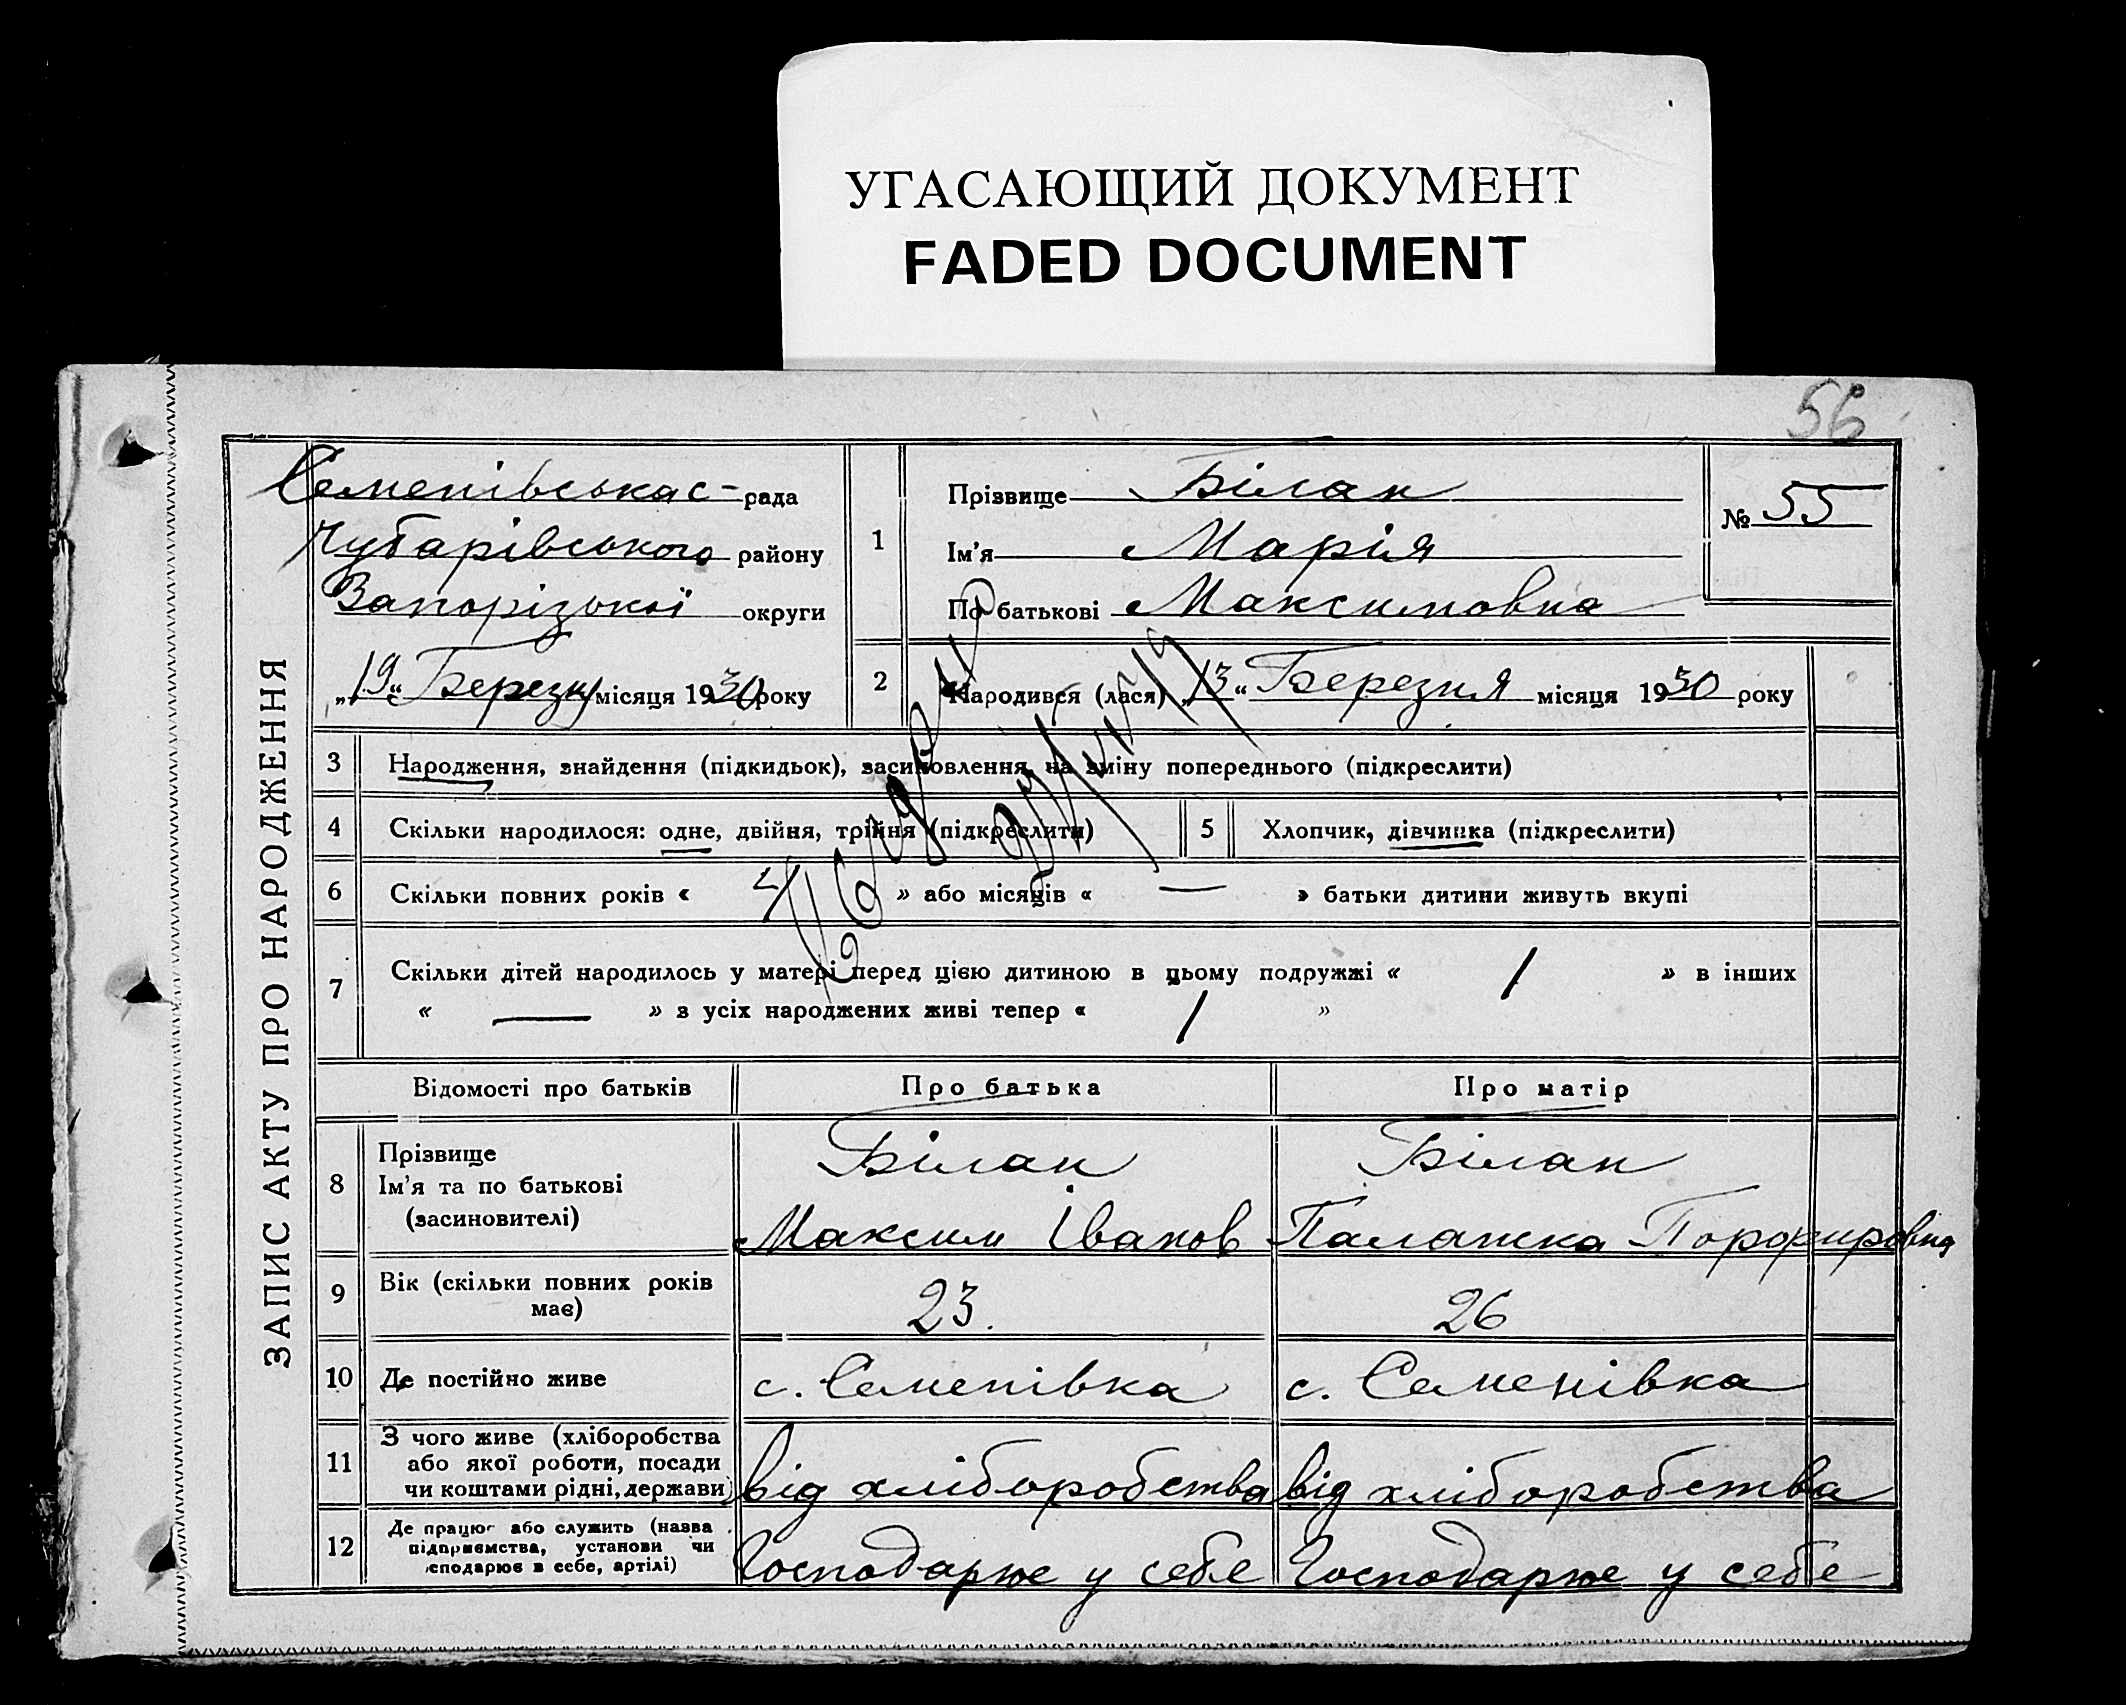 УГАСАЮЩИЙ ДОКУМЕНТ
FADED DOCUMENT
56
ЗАПИС АКТУ ПРО НАРОДЖЕННЯ
Семенівська с- рада
Чубарівського району
Запорізької округи
„19“ Березня місяця 1930 року
1
Прізвище Білан
Ім'я Марія
По батькові Максимовна
№ 55
2 Народився (лася) „13“ Березня місяця 1930 року
3 Народження, знайдення (підкидьок), засиновлення, на зміну попереднього (підкреслити)
4 Скільки народилося: одне, двійня, трійня (підкреслити) 5 Хлопчик, дівчинка (підкреслити)
6 Скільки повних років « 4 » або місяців « — » батьки дитини живуть вкупі
7 Скільки дітей народилось у матері перед цією дитиною в цьому подружжі « 1 » в інших
« — » з усіх народжених живі тепер « 1 »
Відомості про батьків Про батька Про матір
8 Прізвище Ім'я та по батькові (засиновителі)
Білан Білан
Максим Іванов Палажка Порфировна
9 Вік (скільки повних років має) 23. 26
10 Де постійно живе с. Семенівка с. Семенівка
11 З чого живе (хліборобства або якої роботи, посади чи коштами рідні, держави) від хліборобства від хліборобства
12 Де працює або служить (назва підприємства, установи чи господарює в себе, артілі) Господарює у себе Господарює у себе